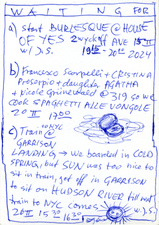 WAITING FOR
a) start BURLESQUE @ HOUSE
OF YES 2 wyckoff AVE 15 II
w/ J.S. 19 30 - 20 30 2024
b) Francesco Scarpelli + CRISTINA
+ daughter AGATHA
+ Nicole Grünewald @ 319 so WE
COOK SPAGHETTI ALLE VONGOLE
20 II 17 00
c) Train NYC
@
GARRISON
LANDING → we boarded in COLD
SPRING, but SUN was too nice to
sit in train, get off in GARRISON
to sit on HUDSON RIVER till next
train to NYC comes
26 II 15 30 - 16 30 w. J.S.